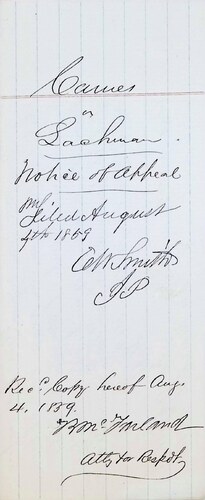 Carnes
vs
Lachman.
Notice of Appeal
Filed August
4th 1859
E W Smith
JP
Recd Copy hereof Aug.
4. 1859.
McFarland
Atty for Respdt.